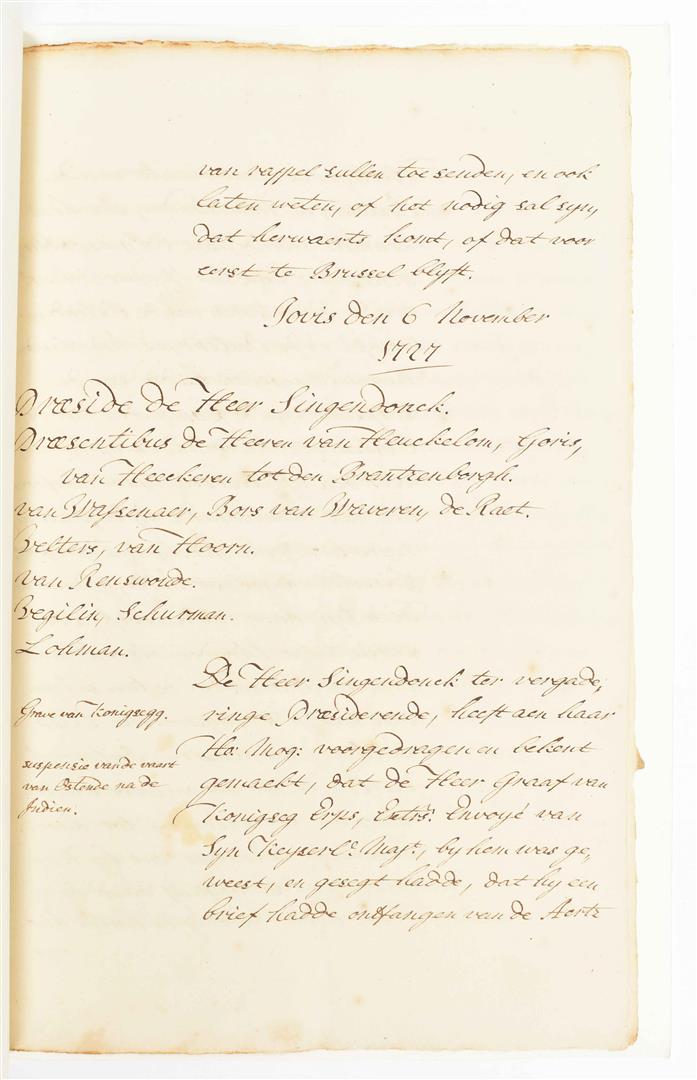 van rappel sullen toesenden, en ook
laten weten, of het nodig sal syn,
dat herwaerts komt, of dat voor
eerst te Brussel blyft.
Jovis den 6 November
1727
Præside de Heer Singendonck.
Præsentibus de Heeren van Heuckelom, Goris,
van Heeckeren tot den Brantzenborgh.
van Wassenaer, Bors van Waveren, de Raet.
Velters, van Hoorn.
van Renswoude.
Vegilin, Schurman.
Lohman.
Grave van Konigsegg.
suspensie vande vaart
van Ostende na de
Indien.
De Heer Singendonck ter vergade,
ringe Præsiderende, heeft aen haar
Ho: Mog: voorgedragen en bekent
gemackt, dat de Heer Graaf van
Konigseg Erps, Extrs: Envoyé van
Syn Keyserle. Mayt., by hem was ge,
weest, en gesegt hadde, dat hy een
brief hadde ontfangen van de Aertz